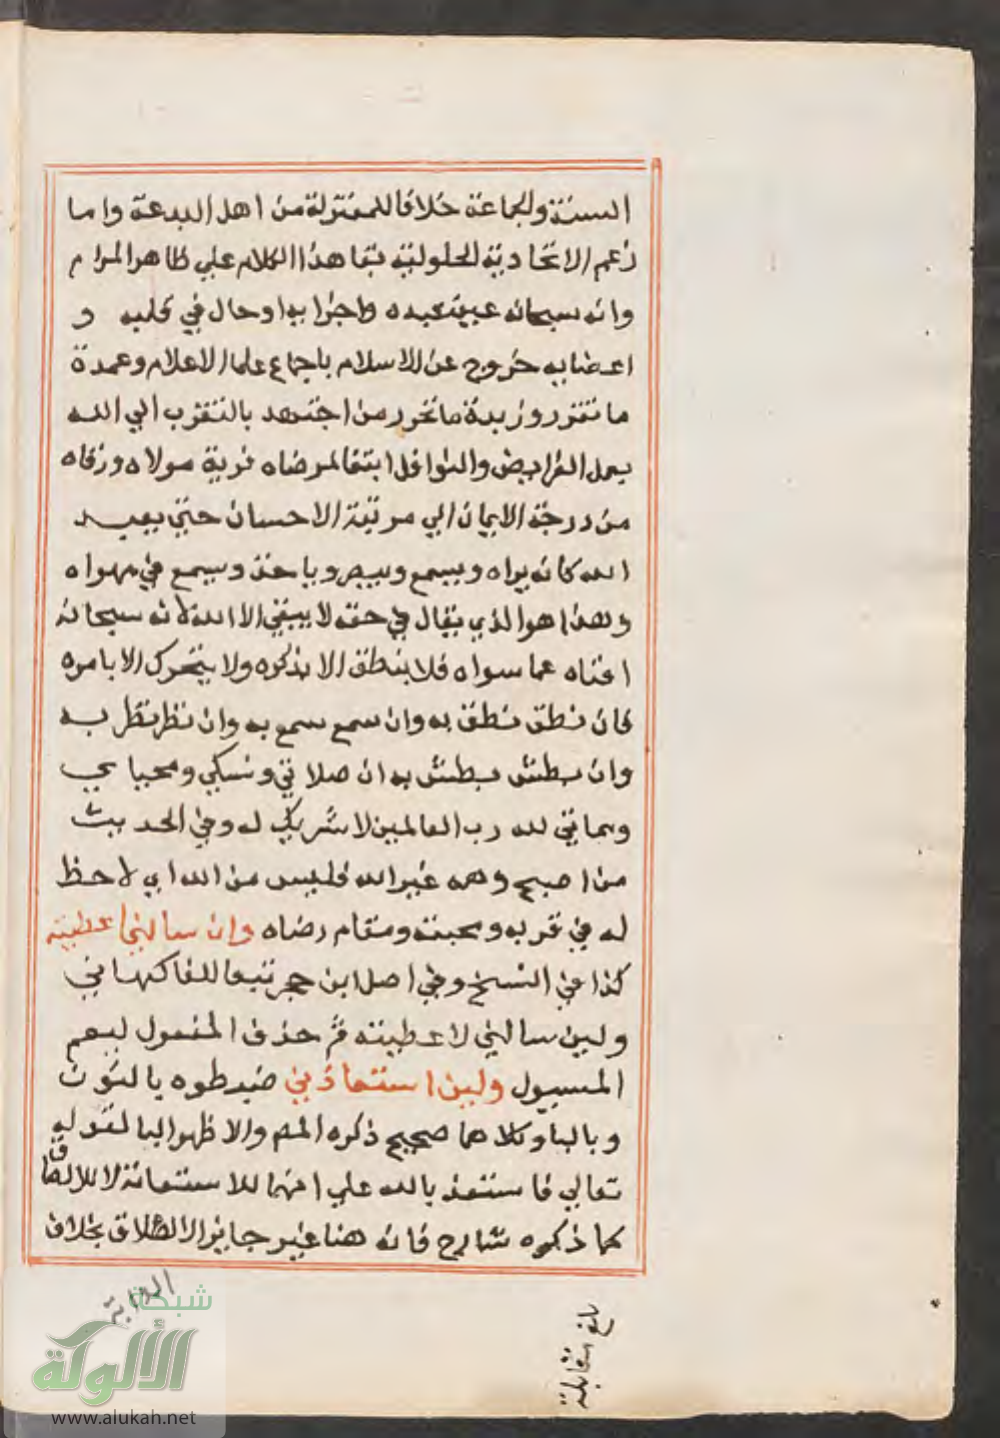 السنة والجماعة خلافا للمعتزلة من اهل البدعة واما
زعم الاتحادية الحلولية بقاهذا الكلام علي ظاهر المرام
وانه سبحانه عين عبده واجزايه او حال في قلبه و
اعضايه خروج عن الاسلام باجماع علما الاعلام وعمدة
ما تقرر وزبدة ما تحرر من اجتهد بالتقرب الي الله
بعمل الفرايض والنوافل ابتغا لمرضاه قربة مولاه ورقاه
من درجة الايمان الي مرتبة الاحسان حتي يعبد
الله كانه يراه ويسمع ويبصر وسمع في مهواه
وهذا هو الذي يقال في حقه لا يبقي الا الله لانه سبحانه
افناه عما سواه فلا ينطق الا بذكره ولا يتحرك الا بامره
فان نطق نطق به وان سمع سمع به وان نظر نظر به
وان بطش بطش به ان صلاتي ونسكي ومحياي
ومماتي لله رب العالمين لا شريك له وفي الحديث
من اصبح وهمه غير الله فليس من الله اي لا حظ
له في قربه ومحبته ومقام رضاه وان سالني اعطيته
كذا في النسخ وفي اصل ابن حجر تبعا للفاكهاني
ولين سالني لاعطينه ثم حذف المفعول ليعم
المسيول ولين استعاذني ضبطوه بالنون
وبالبا وكلاهما صحيح ذكره المص والاظهر البا لقوله
تعالي فاستعذ بالله علي انها للاستعانة لا للالصاق
كما ذكره شارح فانه هنا غير جايز الاطلاق بخلاف
الداية
بلغ مقابلة
شبكة
الألوكة
www.alukah.net